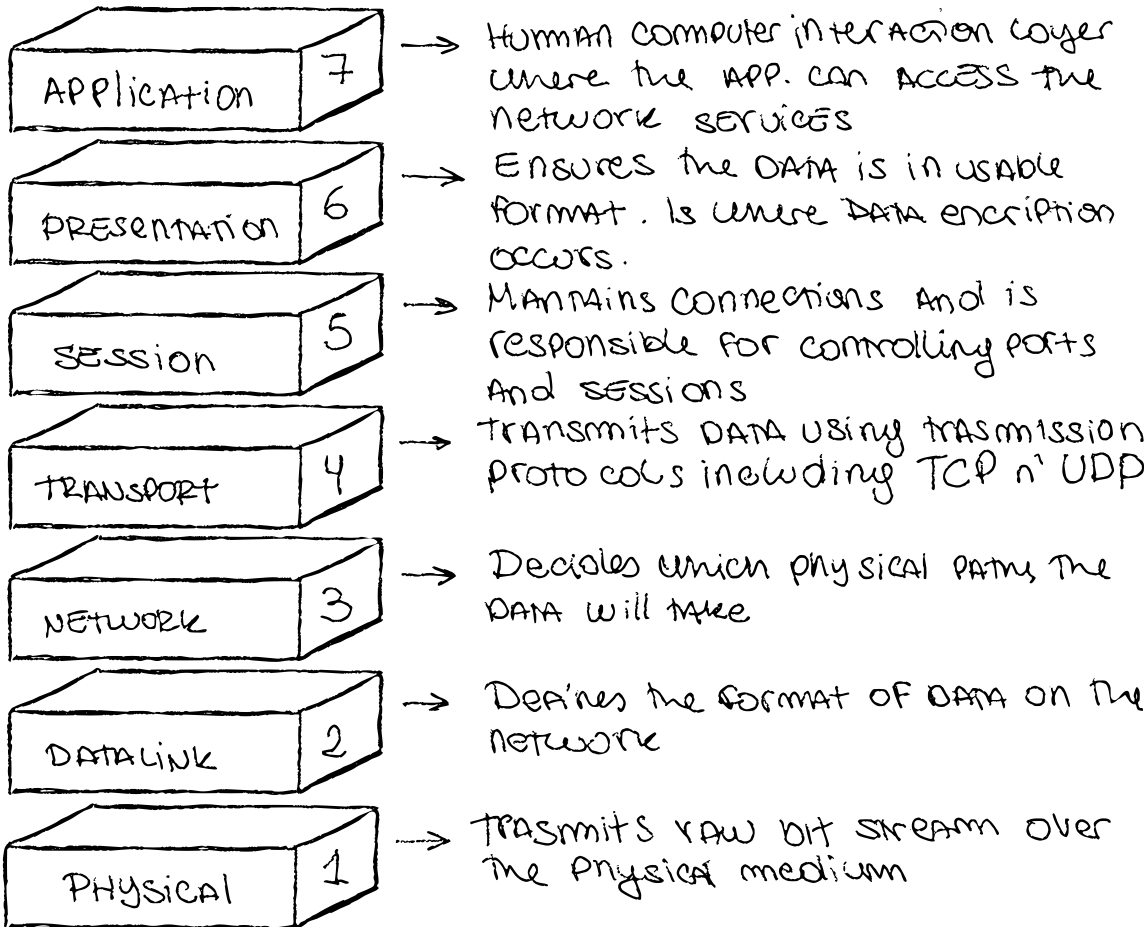 APPlicAtion
7
→ Human computer interaction layer
where the APP. can ACCESS the
network SERVICES
PRESENTATION
6
→ Ensures the DATA is in usable
format. Is where DATA encription
occurs.
SESSION
5
→ MANTAINS connections And is
responsible for controlling ports
And SESSIONS
TRANSPORT
4
→ trAnsmits DATA using trAsmission
protocols including TCP n' UDP
NETWORK
3
→ Decides which physical path, the
DATA will take
DATALINK
2
→ Defines the format of DATA on the
network
PHYSICAl
1
→ TrAsmits raw bit stream over
the physical medium